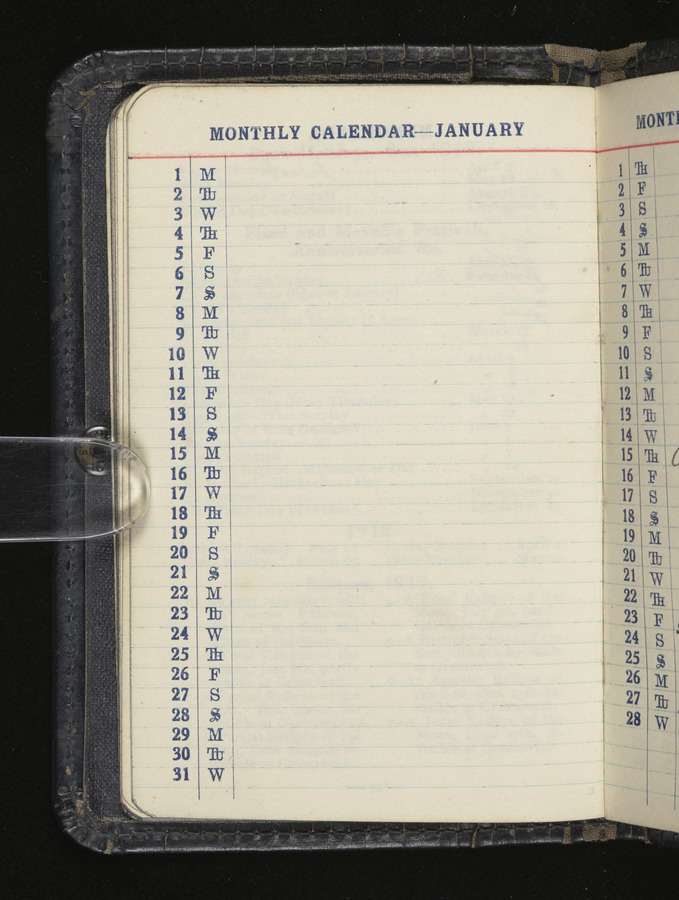 MONTHLY CALENDAR—JANUARY
1 M
2 Tu
3 W
4 Th
5 F
6 S
7 S
8 M
9 Tu
10 W
11 Th
12 F
13 S
14 S
15 M
16 Tu
17 W
18 Th
19 F
20 S
21 S
22 M
23 Tu
24 W
25 Th
26 F
27 S
28 S
29 M
30 Tu
31 W
MONT
1 Th
2 F
3 S
4 S
5 M
6 Tu
7 W
8 Th
9 F
10 S
11 S
12 M
13 Tu
14 W
15 Th
16 F
17 S
18 S
19 M
20 Tu
21 W
22 Th
23 F
24 S
25 S
26 M
27 Tu
28 W